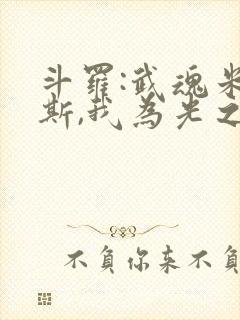 斗羅:武魂米
斯,我為光之
不負你來不負